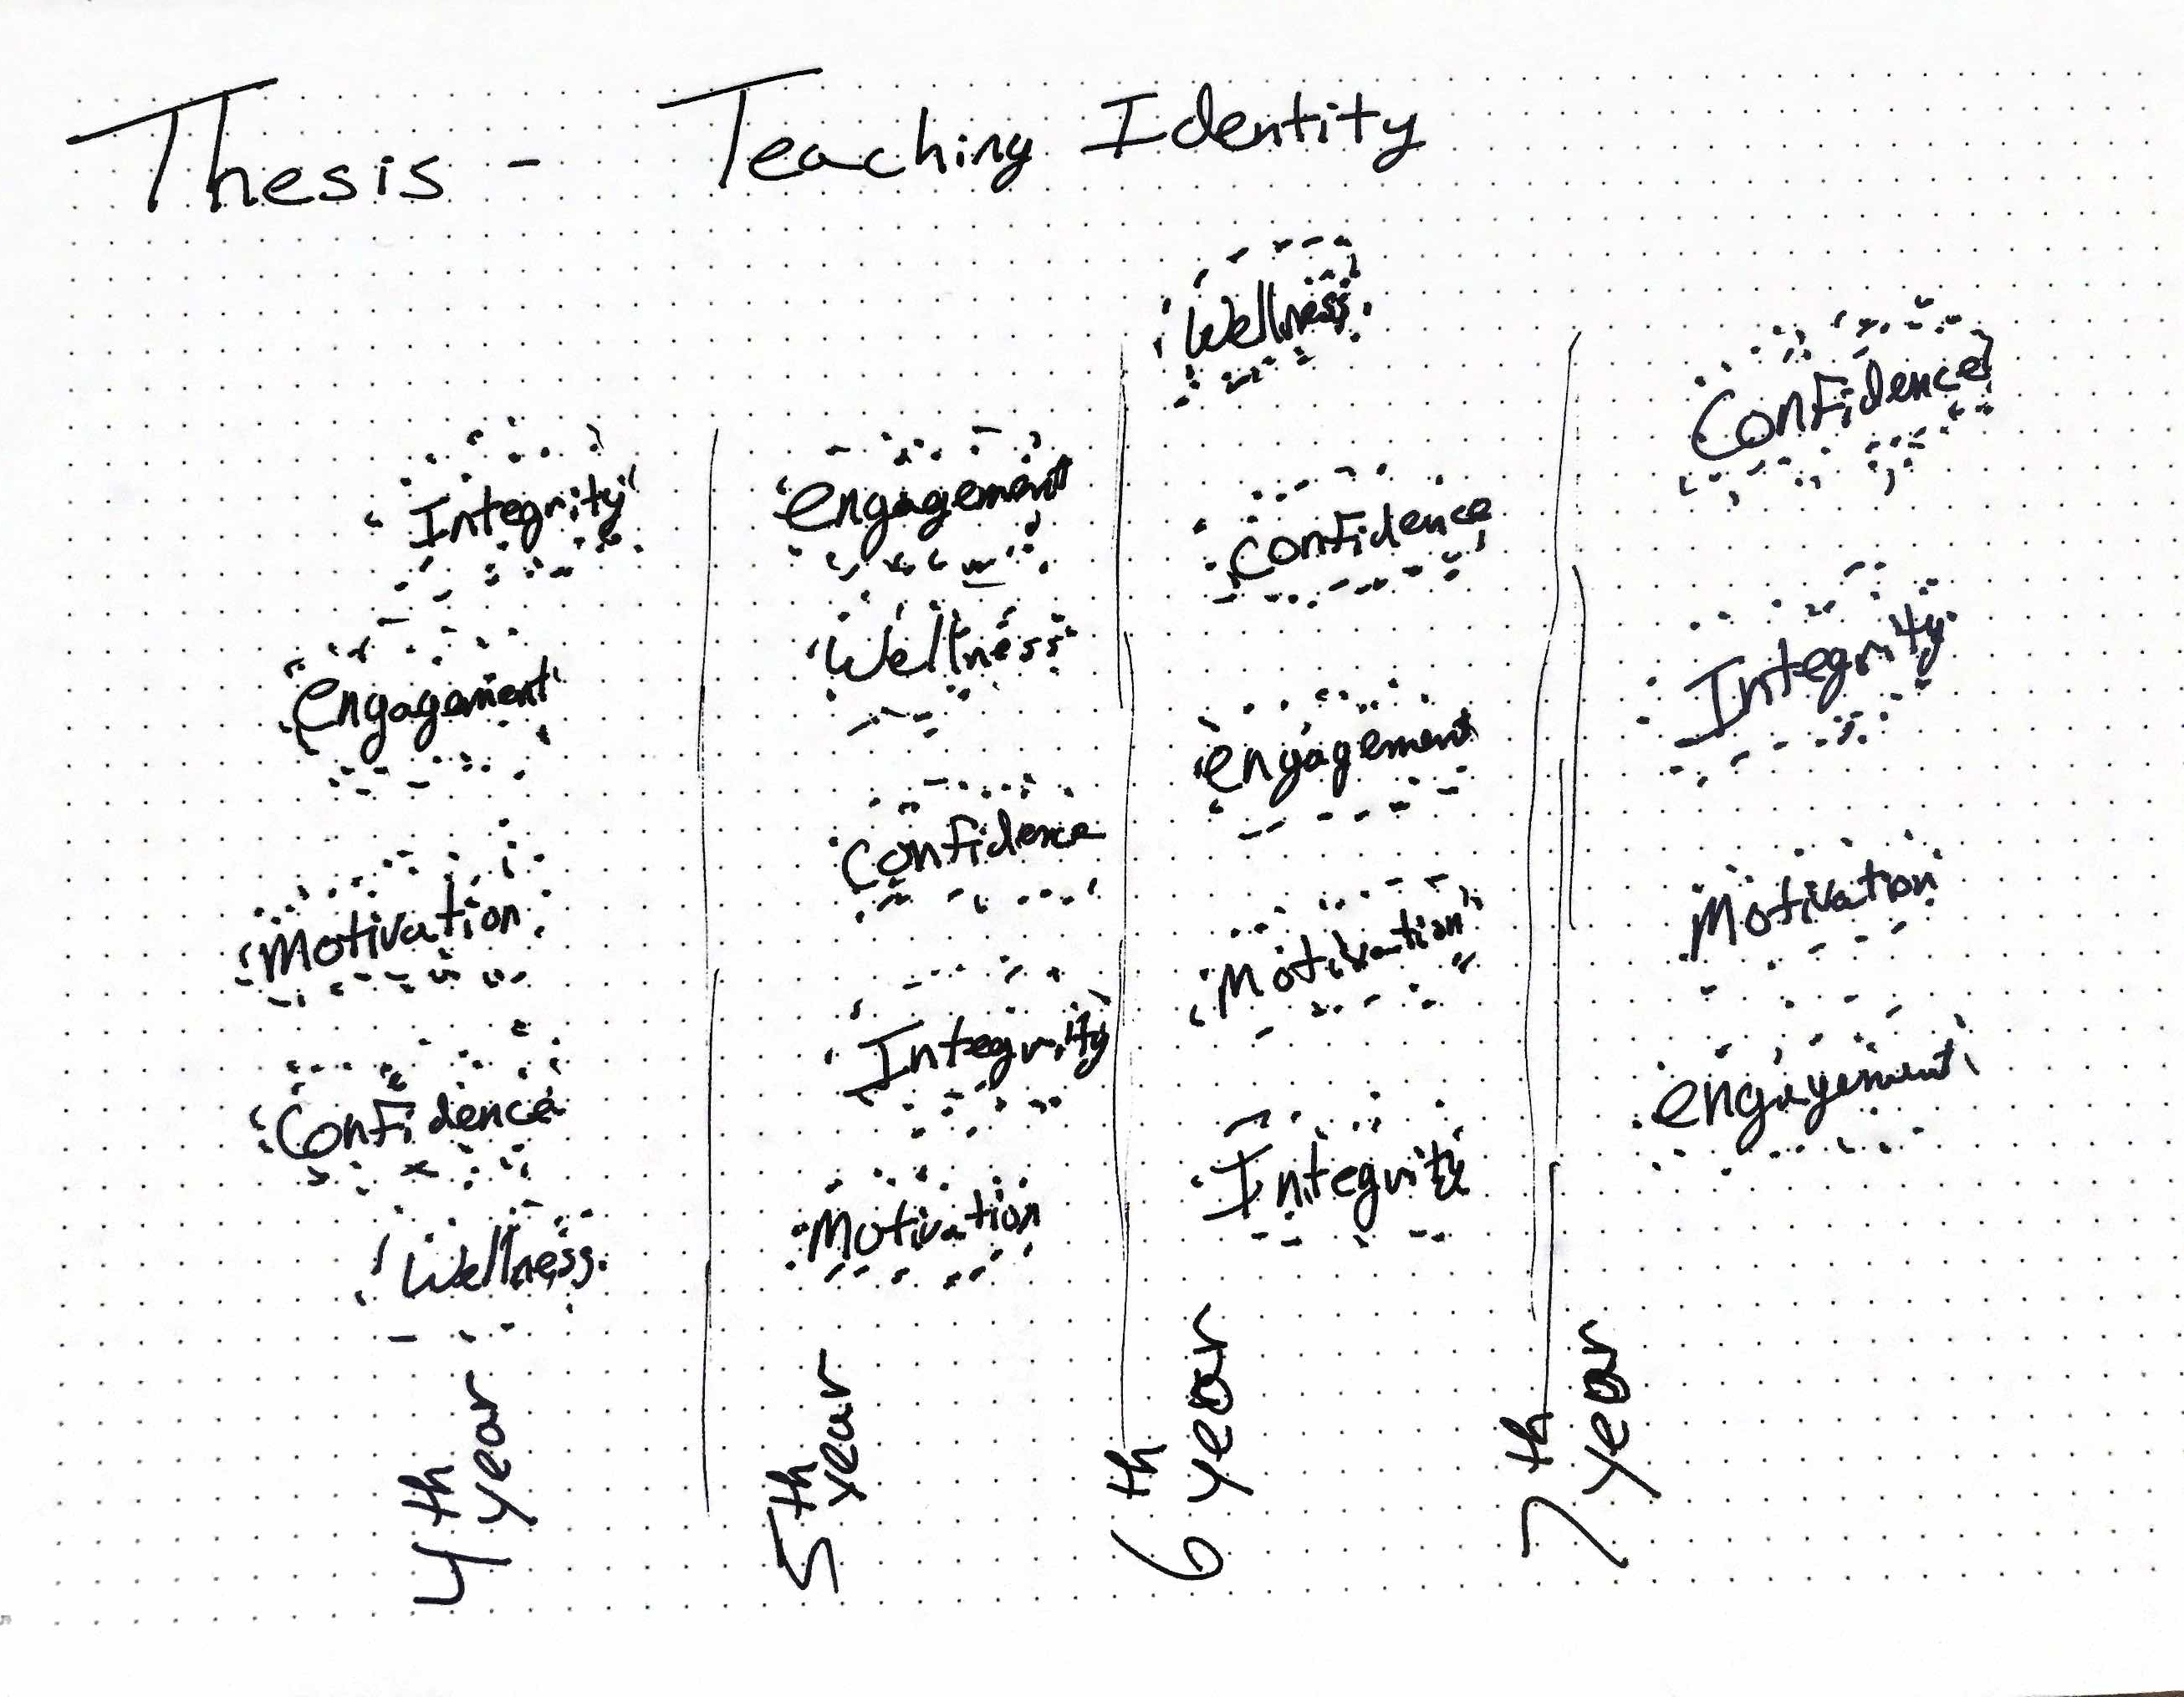 Thesis - Teaching Identity
Integrity
engagement
Motivation
Confidence
Wellness
4th year
engagement
Wellness
Confidence
Integrity
Motivation
5th year
Wellness
Confidence
engagement
Motivation
Integrity
6th year
Confidence
Integrity
Motivation
engagement
7th year